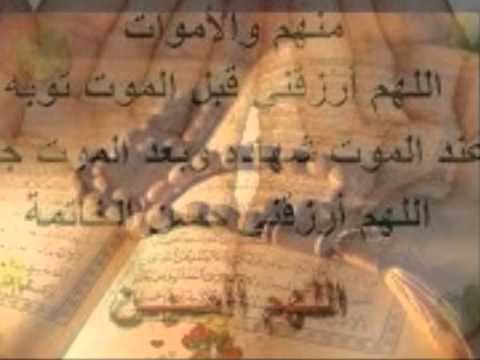 منهم والأموات
اللهم أرزقني قبل الموت توبه
عند الموت شهاده وبعد الموت
اللهم أرزقني حسن الخاتمة
اللهم